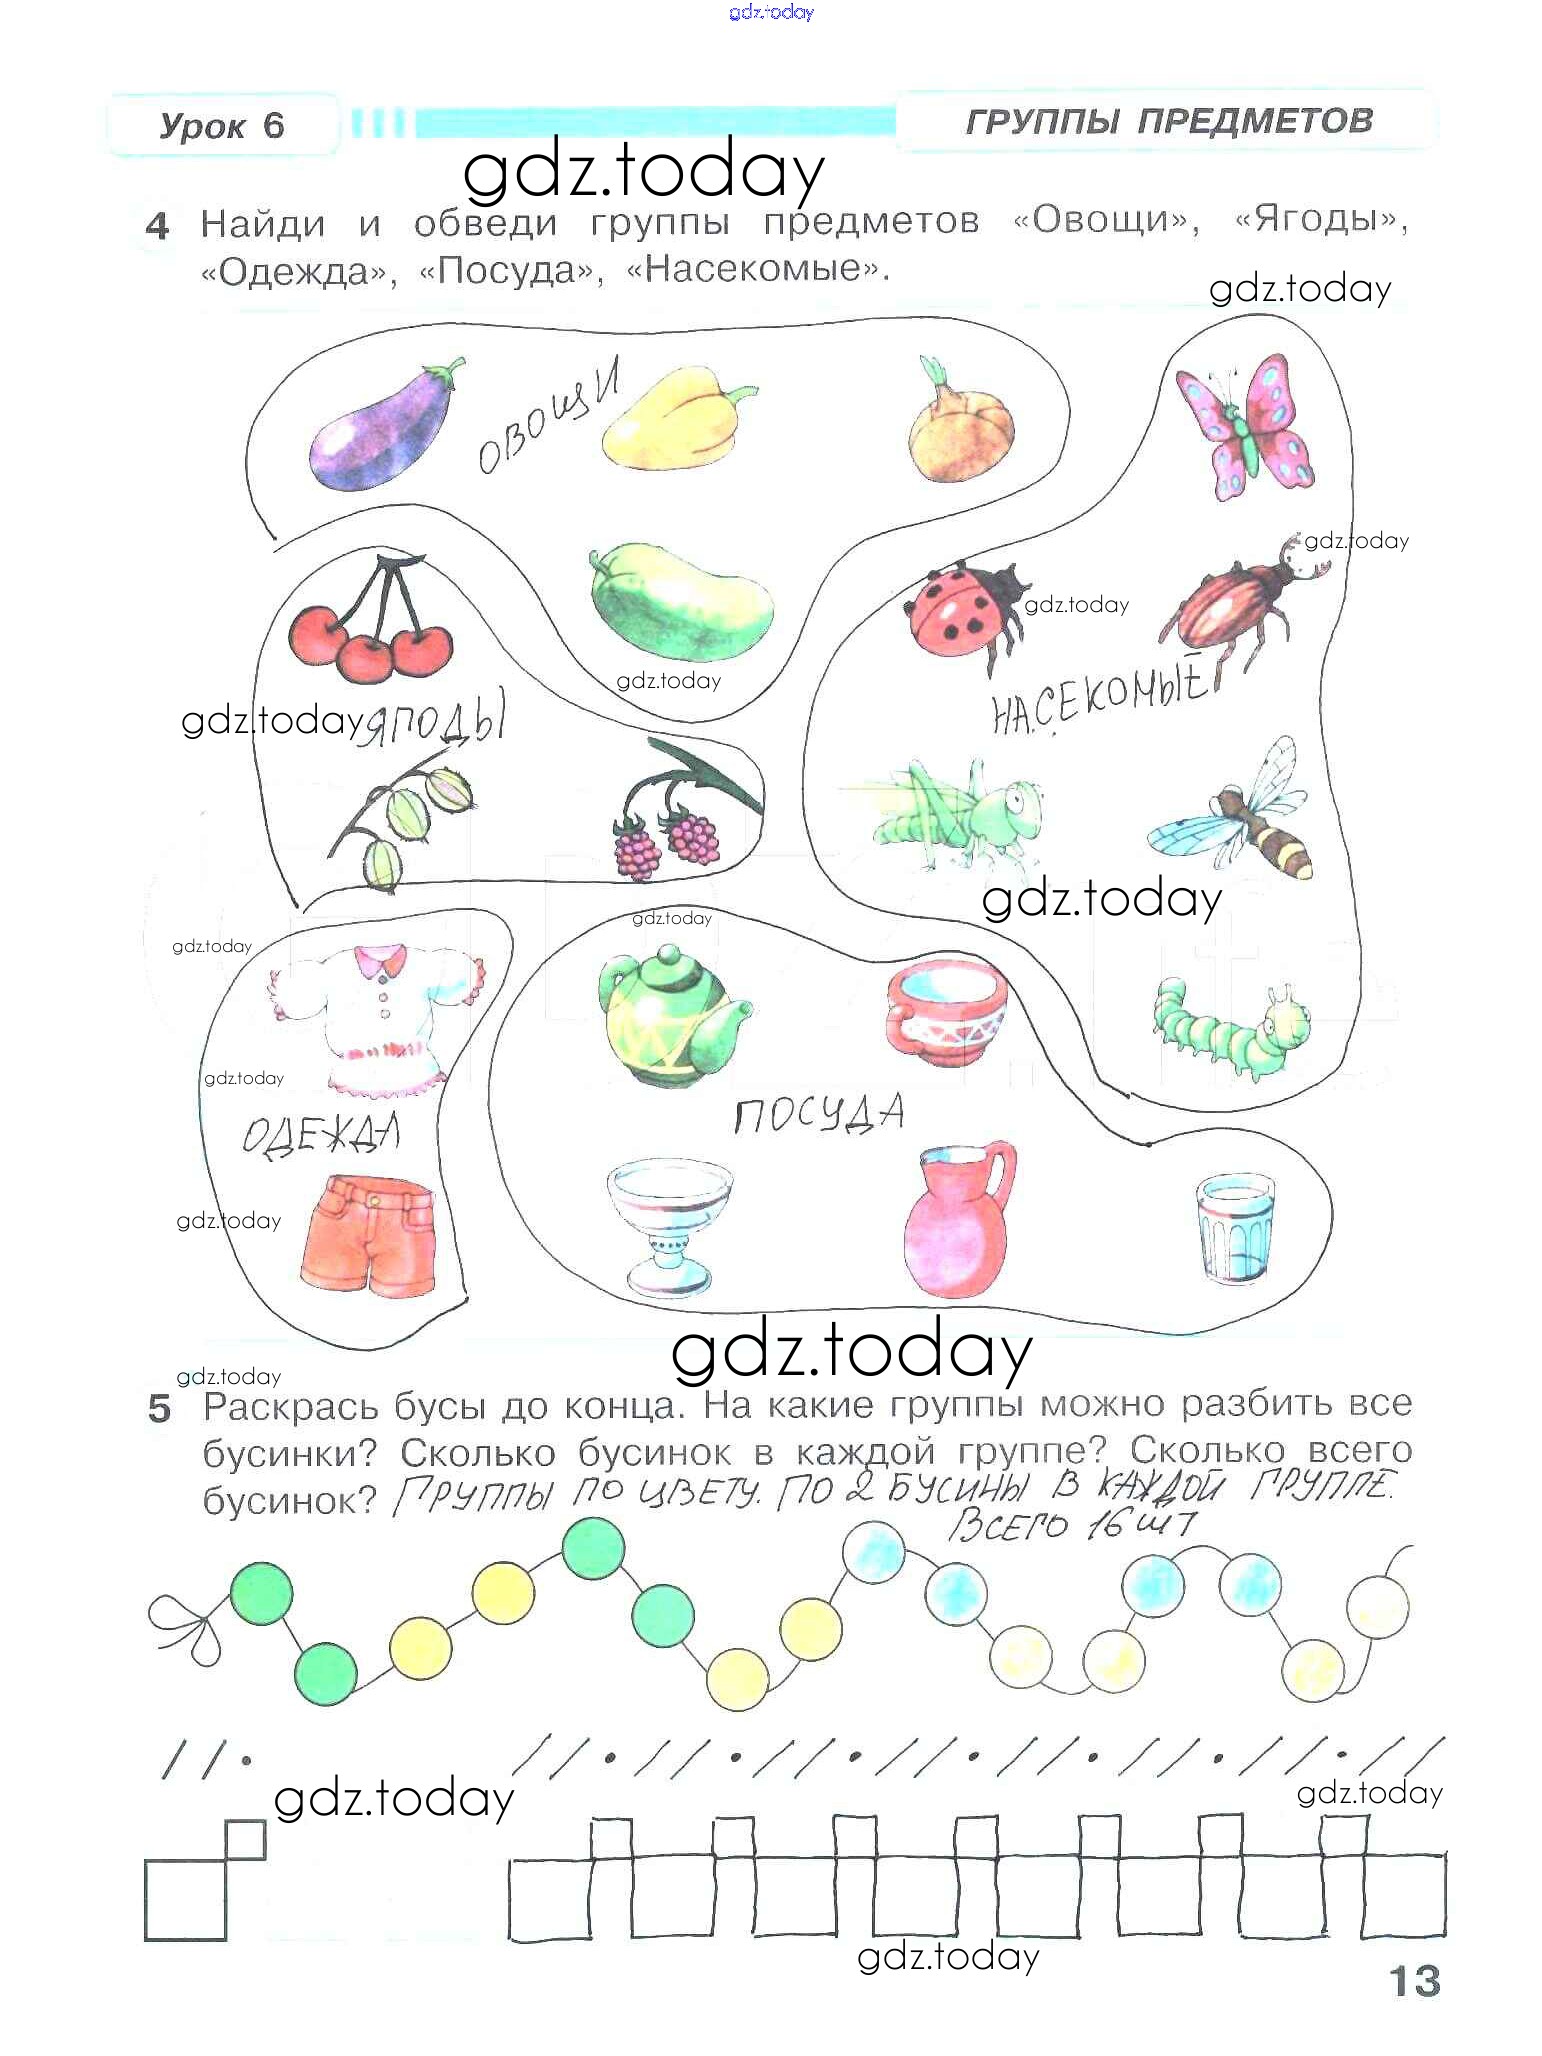 gdz.today
Урок 6
ГРУППЫ ПРЕДМЕТОВ
gdz.today
4 Найди и обведи группы предметов «Овощи», «Ягоды»,
«Одежда», «Посуда», «Насекомые».
gdz.today
ОВОЩИ
gdz.today
gdz.today
gdz.today
НАСЕКОМЫЕ
gdz.today
ЯГОДЫ
gdz.today
gdz.today
gdz.today
gdz.today
ПОСУДА
ОДЕЖДА
gdz.today
gdz.today
gdz.today
5 Раскрась бусы до конца. На какие группы можно разбить все
бусинки? Сколько бусинок в каждой группе? Сколько всего
бусинок? ГРУППЫ ПО ЦВЕТУ. ПО 2 БУСИНЫ В КАЖДОЙ ГРУППЕ.
ВСЕГО 16 ШТ
gdz.today
gdz.today
gdz.today
13